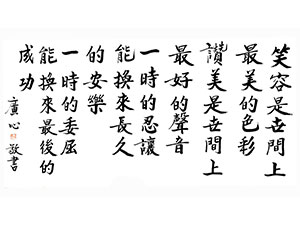 笑容是世間上
最美的色彩
讚美是世間上
最好的聲音
一時的忍讓
能換來長久
的安樂
一時的委屈
能換來最後的
成功
廣心敬書